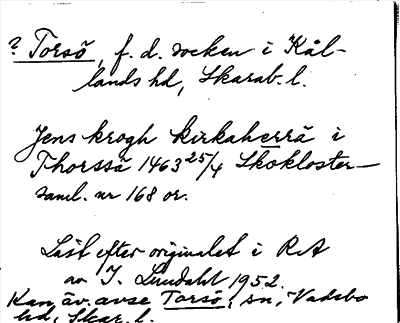 ? Torsö, f. d. socken i Kål-
lands hd, Skarab. l.
Jens krogh kirkaherrä i
Thorssä 1463 25/4 Skokloster-
saml. nr 168 or.
Läst efter originalet i RA
av I. Lundahl 1952.
Kan äv. avse Torsö, sn, Vadsbo
hd, Skar. l.